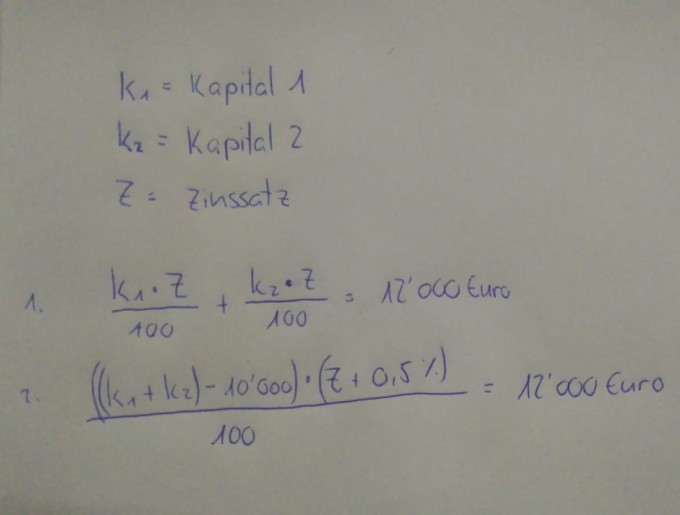 K₁ = Kapital 1
K₂ = Kapital 2
Z = Zinssatz
1. K₁·Z/100 + K₂·Z/100 = 12'000 Euro
2. ((K₁+K₂)-10'000)·(Z+0,5%)/100 = 12'000 Euro